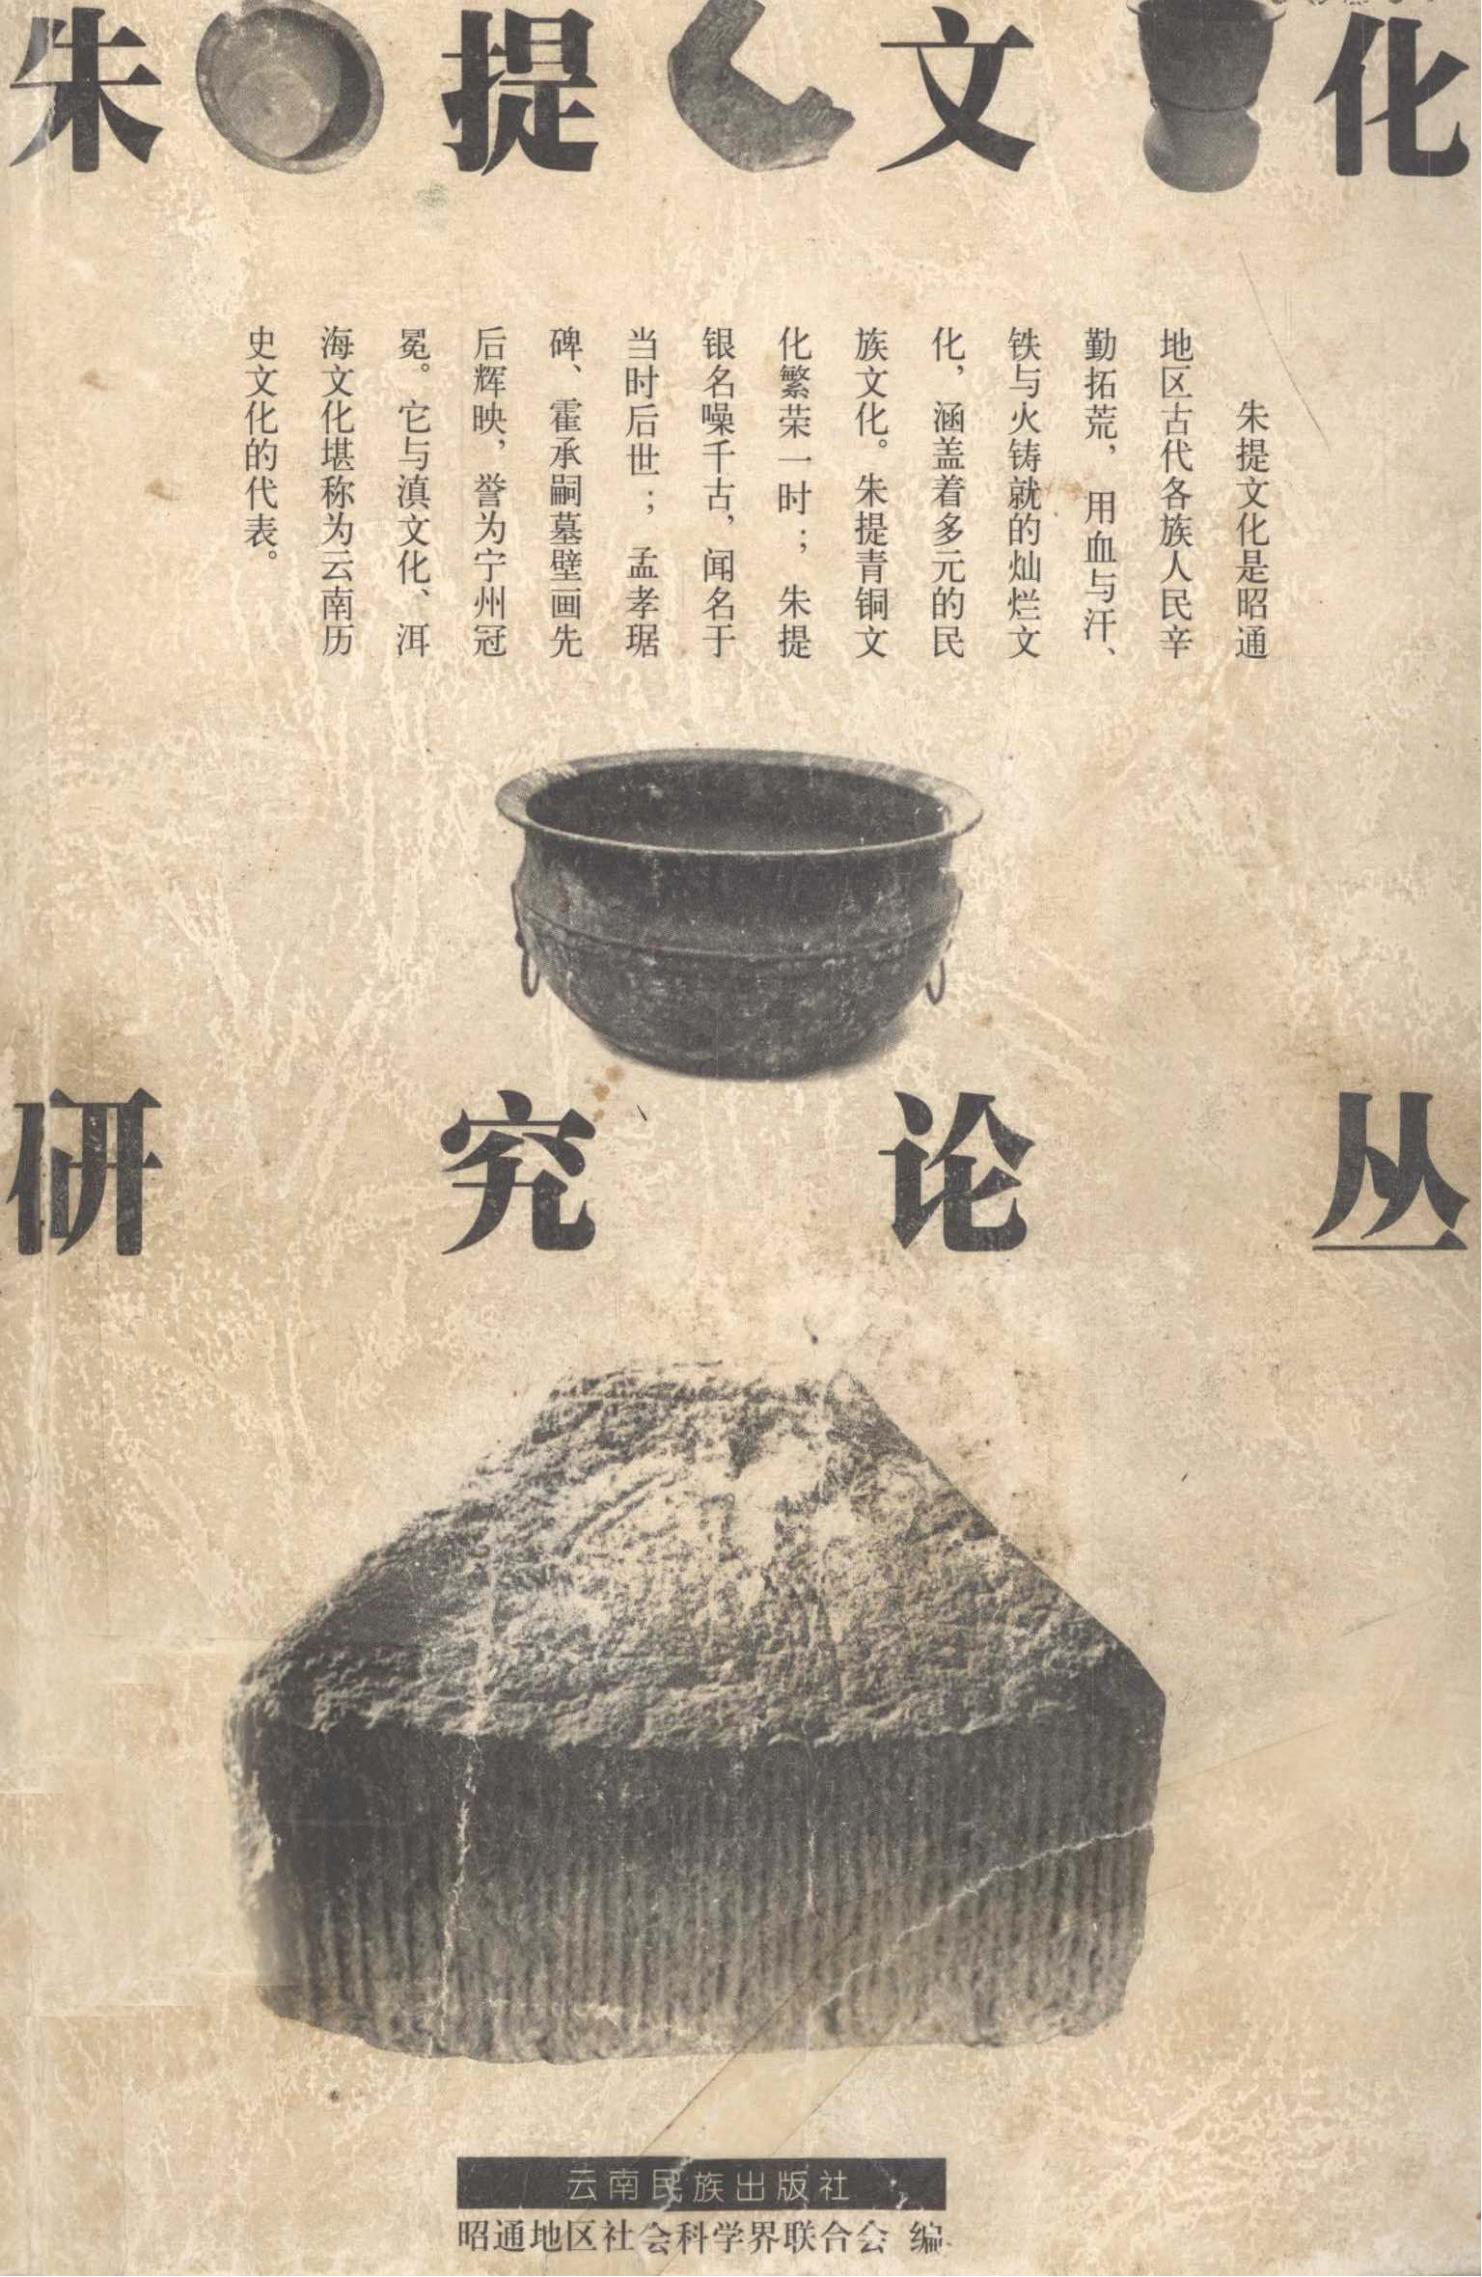 朱提文化
朱提文化是昭通
地区古代各族人民辛
勤拓荒，用血与汗、
铁与火铸就的灿烂文
化，涵盖着多元的民
族文化。朱提青铜文
化繁荣一时；朱提
银名噪千古，闻名于
当时后世；孟孝琚
碑、霍承嗣墓壁画先
后辉映，誉为宁州冠
冕。它与滇文化、洱
海文化堪称为云南历
史文化的代表。
研究论丛
云南民族出版社
昭通地区社会科学界联合会 编